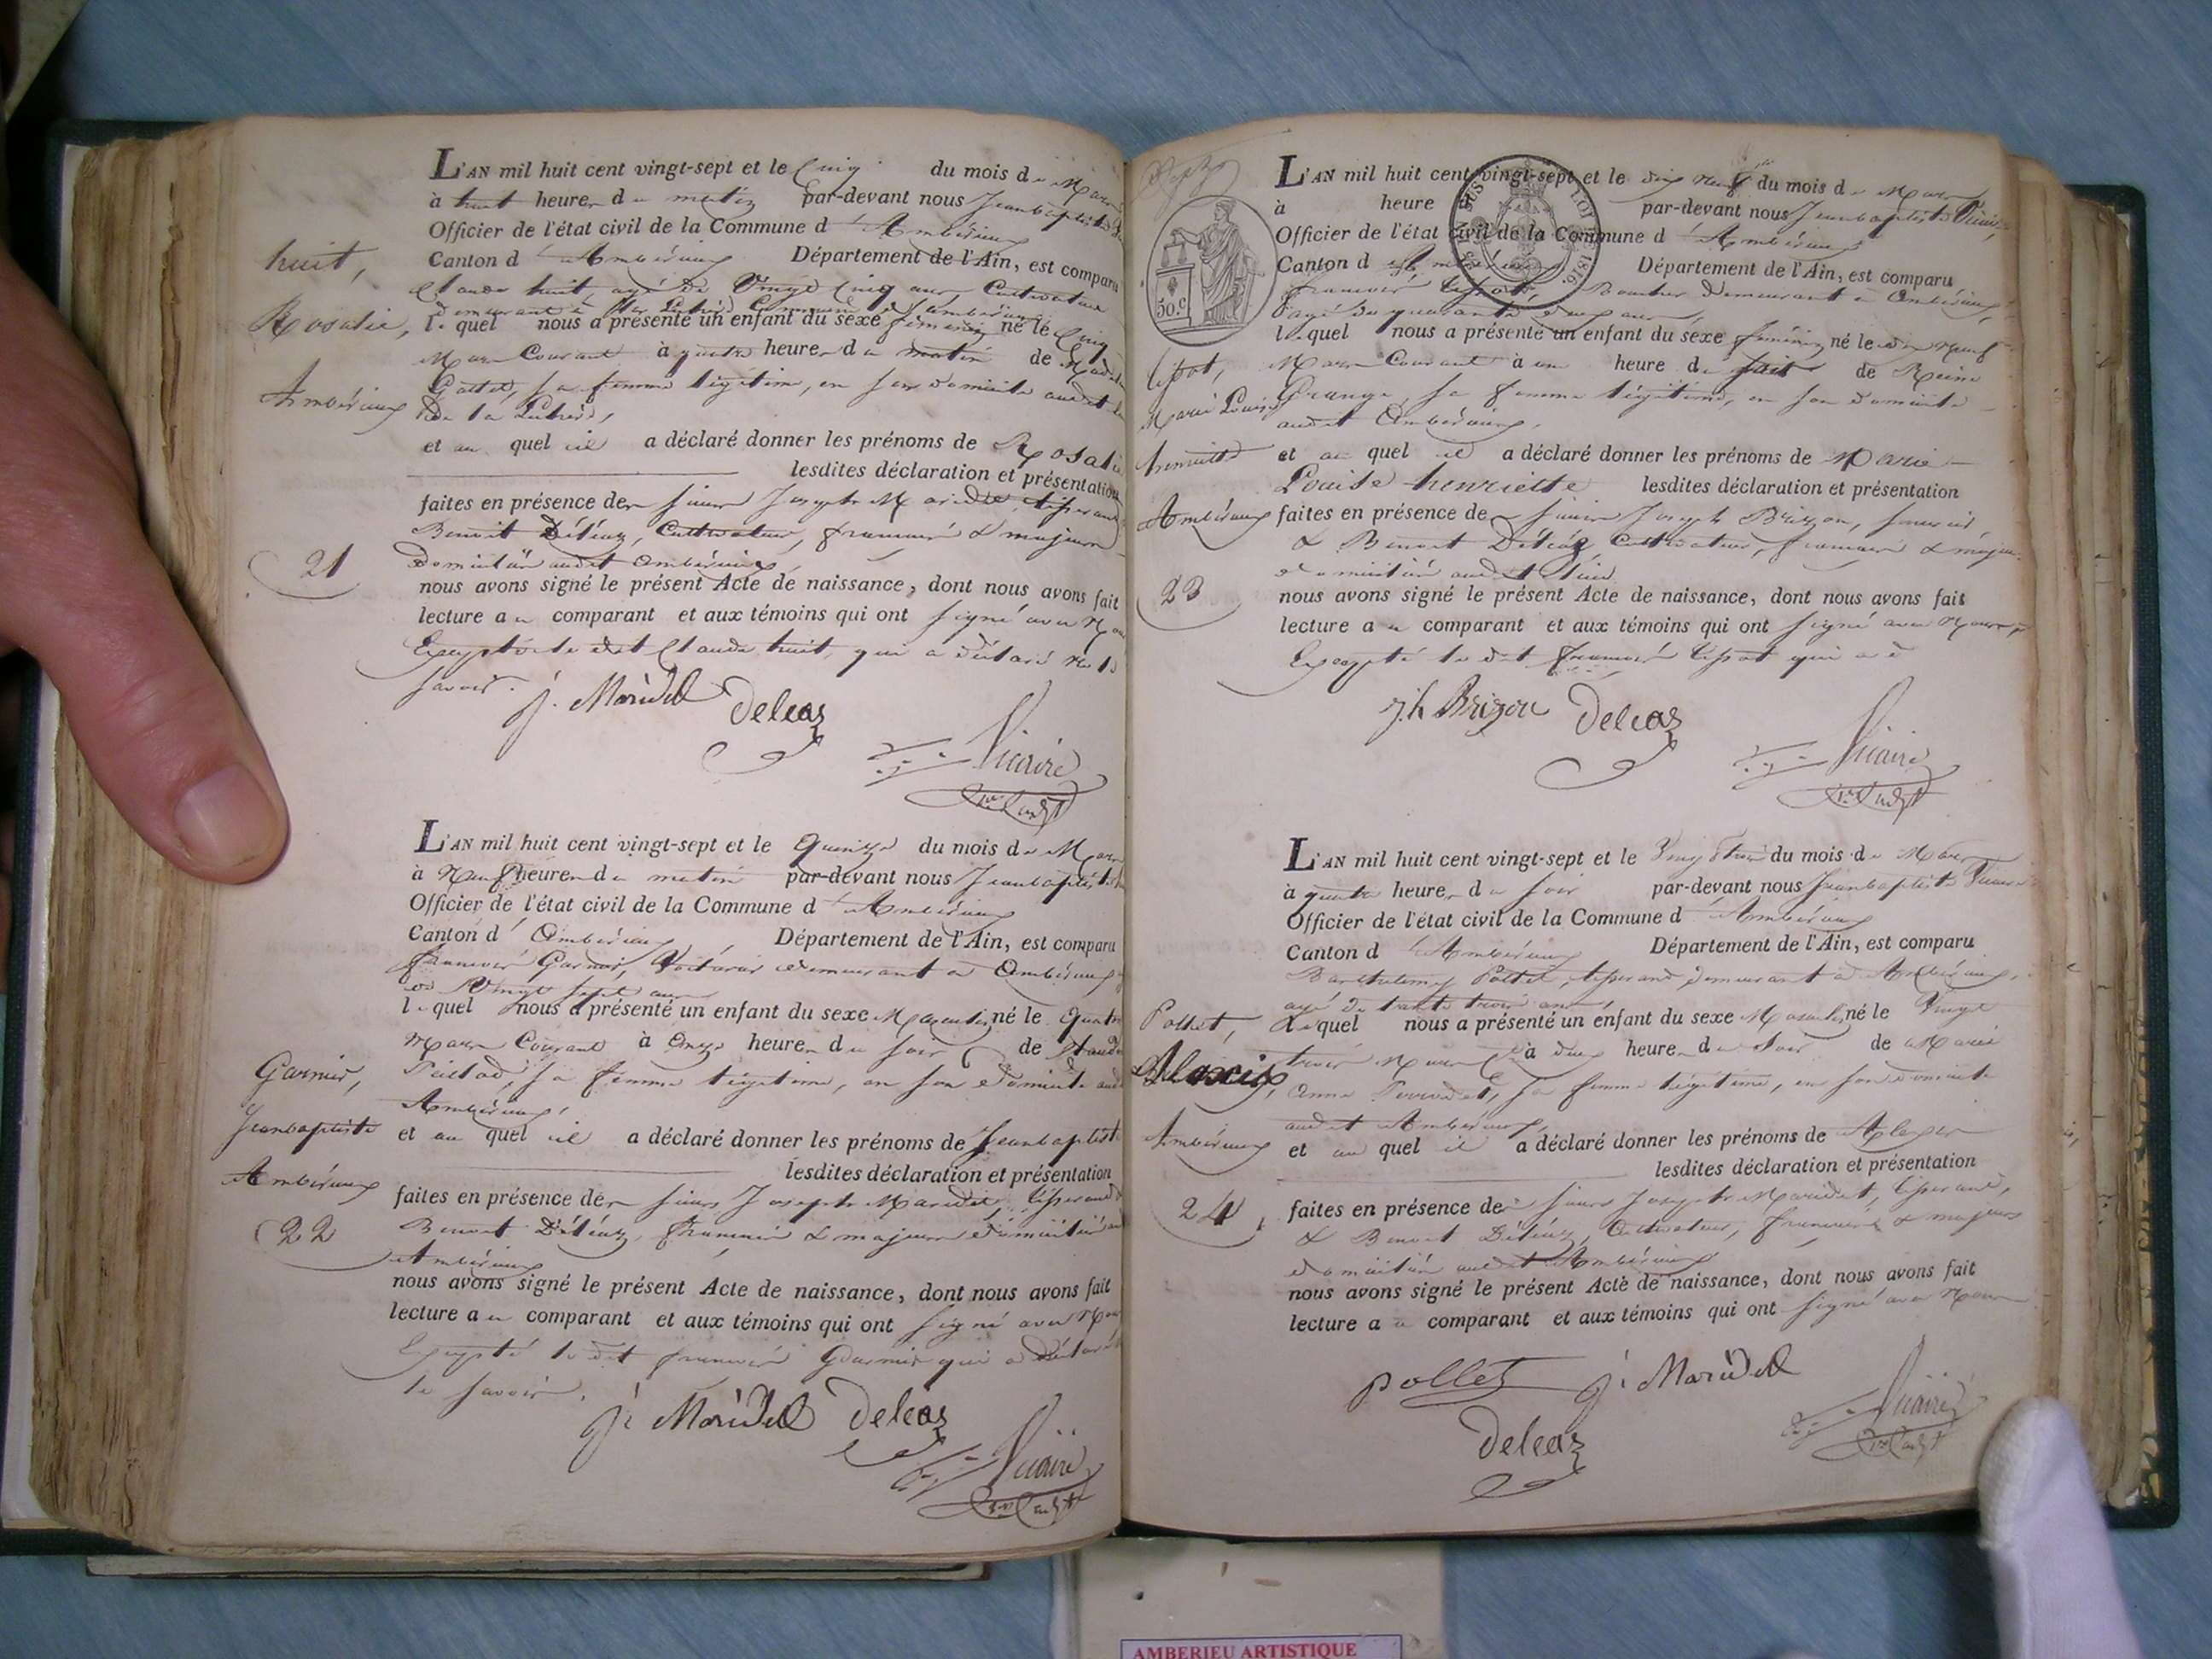 L'AN mil huit cent vingt-sept et le Cinq du mois de Mars
à huit heures du matin par-devant nous Jean baptiste
Officier de l'état civil de la Commune d'Ambérieux
Canton d'Ambérieux Département de l'Ain, est comparu
Claude huit agé de Vingt Cinq ans, Cultivateur
demeurant à
huit,
Rosalie,
Ambérieux
21
le quel nous a présenté un enfant du sexe féminin né le Cinq
Mars Courant à quatre heures du matin de
sa femme légitime, en son domicile audit
et au quel il a déclaré donner les prénoms de Rosalie
lesdites déclaration et présentation
faites en présence des sieurs Joseph Maridet, tisserand
Benoit Déléaz, Cultivateur, français & majeurs
Domiciliés audit Ambérieux
nous avons signé le présent Acte de naissance, dont nous avons fait
lecture au comparant et aux témoins qui ont signé avec Nous
Excepté le dit Claude huit, qui a déclaré ne le
savoir.
j. Maridet Deleaz
Vicaire
L'AN mil huit cent vingt-sept et le Quinze du mois de Mars
à Neuf heures du matin par-devant nous Jean baptiste
Officier de l'état civil de la Commune d'Ambérieux
Canton d'Ambérieux Département de l'Ain, est comparu
françois Garnier, demeurant à Ambérieux
de Vingt sept ans
le quel nous a présenté un enfant du sexe Masculin né le Quatorze
Mars Courant à Onze heures du soir de
Garnier,
Jean baptiste
Ambérieux
22
sa femme légitime, en son domicile audit
Ambérieux,
et au quel il a déclaré donner les prénoms de Jean baptiste
lesdites déclaration et présentation
faites en présence des sieurs Joseph Maridet, tisserand &
Benoit Déléaz, français & majeurs domiciliés audit
Ambérieux
nous avons signé le présent Acte de naissance, dont nous avons fait
lecture au comparant et aux témoins qui ont signé avec Nous
Excepté le dit françois Garnier qui a déclaré
le savoir.
j. Maridet Deleaz
Vicaire
50.c
LOI DE 1816.
L'AN mil huit cent vingt-sept et le dix neuf du mois de Mars
à heure par-devant nous Jean baptiste Vicaire,
Officier de l'état civil de la Commune d'Ambérieux
Canton d'Ambérieux Département de l'Ain, est comparu
françois demeurant à Ambérieux,
agé de quarante deux ans,
le quel nous a présenté un enfant du sexe féminin né le dix Neuf
Mars Courant à une heure du de Reine
Marie Louise
henriette
Ambérieux
23
Grange, sa femme légitime, en son domicile
audit Ambérieux,
et au quel il a déclaré donner les prénoms de Marie
Louise henriette lesdites déclaration et présentation
faites en présence des sieurs Joseph Brizon,
& Benoit Déléaz, Cultivateur, français & majeurs
domiciliés audit lieu
nous avons signé le présent Acte de naissance, dont nous avons fait
lecture au comparant et aux témoins qui ont signé avec Nous,
Excepté le dit françois qui a é
j.h Brizon Deleaz
Vicaire
L'AN mil huit cent vingt-sept et le Vingt trois du mois de Mars
à quatre heures du soir par-devant nous Jean baptiste Vicaire
Officier de l'état civil de la Commune d'Ambérieux
Canton d'Ambérieux Département de l'Ain, est comparu
Barthelemy Pollet, tisserand, demeurant à Ambérieux,
agé de trente trois ans,
Pollet,
Alexis,
Ambérieux
24
Lequel nous a présenté un enfant du sexe Masculin né le Vingt
trois Mars à deux heures du soir de Marie
Anne sa femme légitime, en son domicile
audit Ambérieux,
et au quel il a déclaré donner les prénoms de Alexis
lesdites déclaration et présentation
faites en présence des sieurs Joseph Maridet, tisserand,
& Benoit Déléaz, Cultivateur, français & majeurs
domiciliés audit Ambérieux
nous avons signé le présent Acte de naissance, dont nous avons fait
lecture au comparant et aux témoins qui ont signé avec Nous
pollet j. Maridet
Deleaz
Vicaire
AMBERIEU ARTISTIQUE